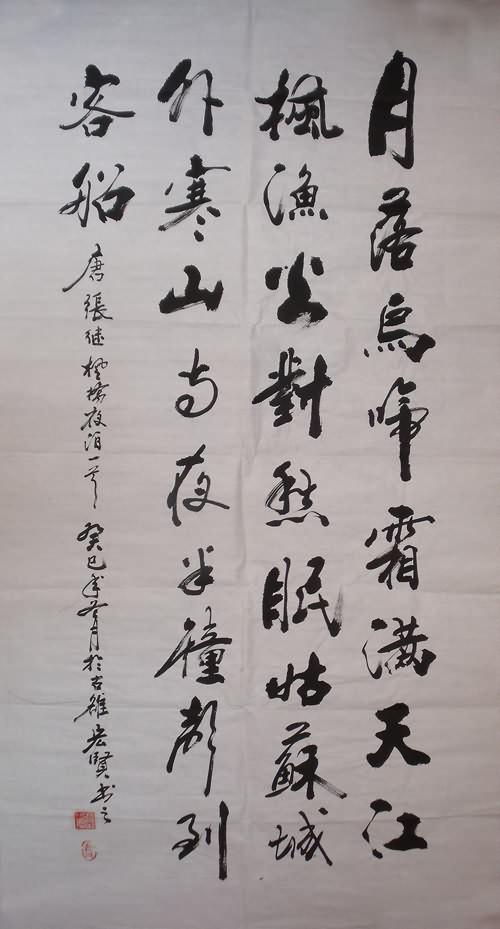 月落烏啼霜滿天江
楓漁火對愁眠姑蘇城
外寒山寺夜半鐘聲到
客船 唐張继楓橋夜泊一首 癸巳年月於古雒宏賢书之